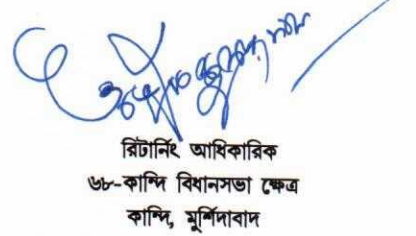 রিটার্নিং আধিকারিক
৬৮-কান্দি বিধানসভা ক্ষেত্র
কান্দি, মুর্শিদাবাদ